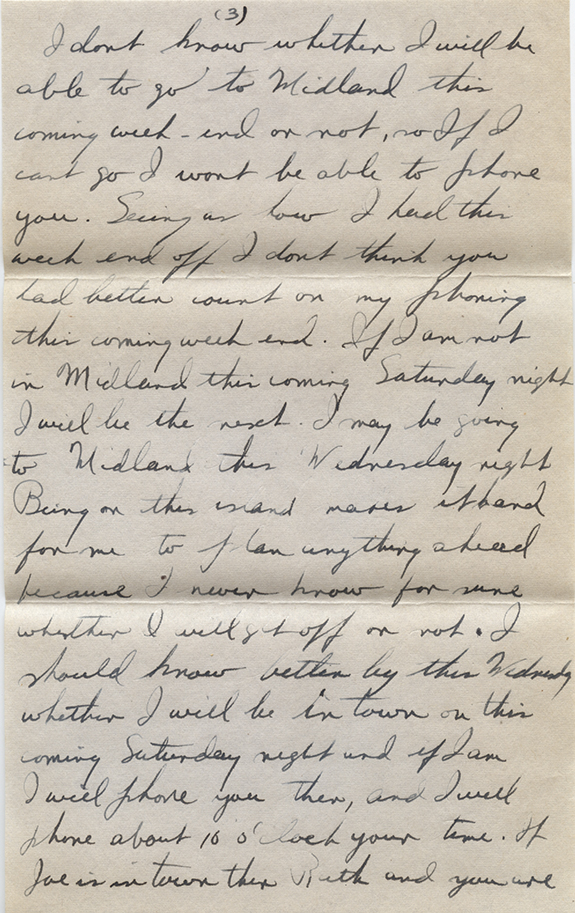 (3)
I dont know whether I will be
able to go to Midland this
coming week-end or not, so If I
cant go I wont be able to phone
you. Seeing as how I had this
week end off I dont think you
had better count on my phoning
this coming week end. If I am not
in Midland this coming Saturday night
I will be the next. I may be going
to Midland this Wednesday night
Being on this island makes it hard
for me to plan anything ahead
because I never know for sure
whether I will get off or not. I
should know better by this Wednesdy
whether I will be in town on this
coming Saturday night and if I am
I will phone you then, and I will
phone about 10 o'clock your time. If
Joe is in town then Ruth and you are